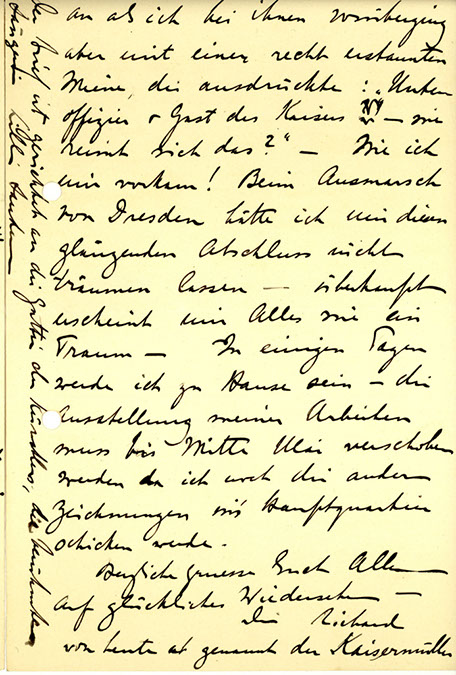 an als ich bei ihnen vorüberging
aber mit einer recht erstaunten
Miene, die ausdrückte: „Unter-
offizier & Gast des Kaisers ?? — wie
reimt sich das?" — Wie ich
mir vorkam! Beim Ausmarsch
von Dresden hätte ich mir diesen
glänzenden Abschluss nicht
träumen lassen — überhaupt
erscheint mir Alles wie ein
Traum — In einigen Tagen
werde ich zu Hause sein — die
Ausstellung meiner Arbeiten
muss bis Mitte Mai verschoben
werden da ich noch die andern
Zeichnungen ins Hauptquartier
schicken werde.
Herzliche Gruesse Euch Allen
auf glückliches Wiedersehen —
Dein Richard
von heute ab genannt der Kaisermüller
Der Brief ist gerichtet an die Gattin des Künstlers, die berühmte
Sängerin Lilli Sanderson